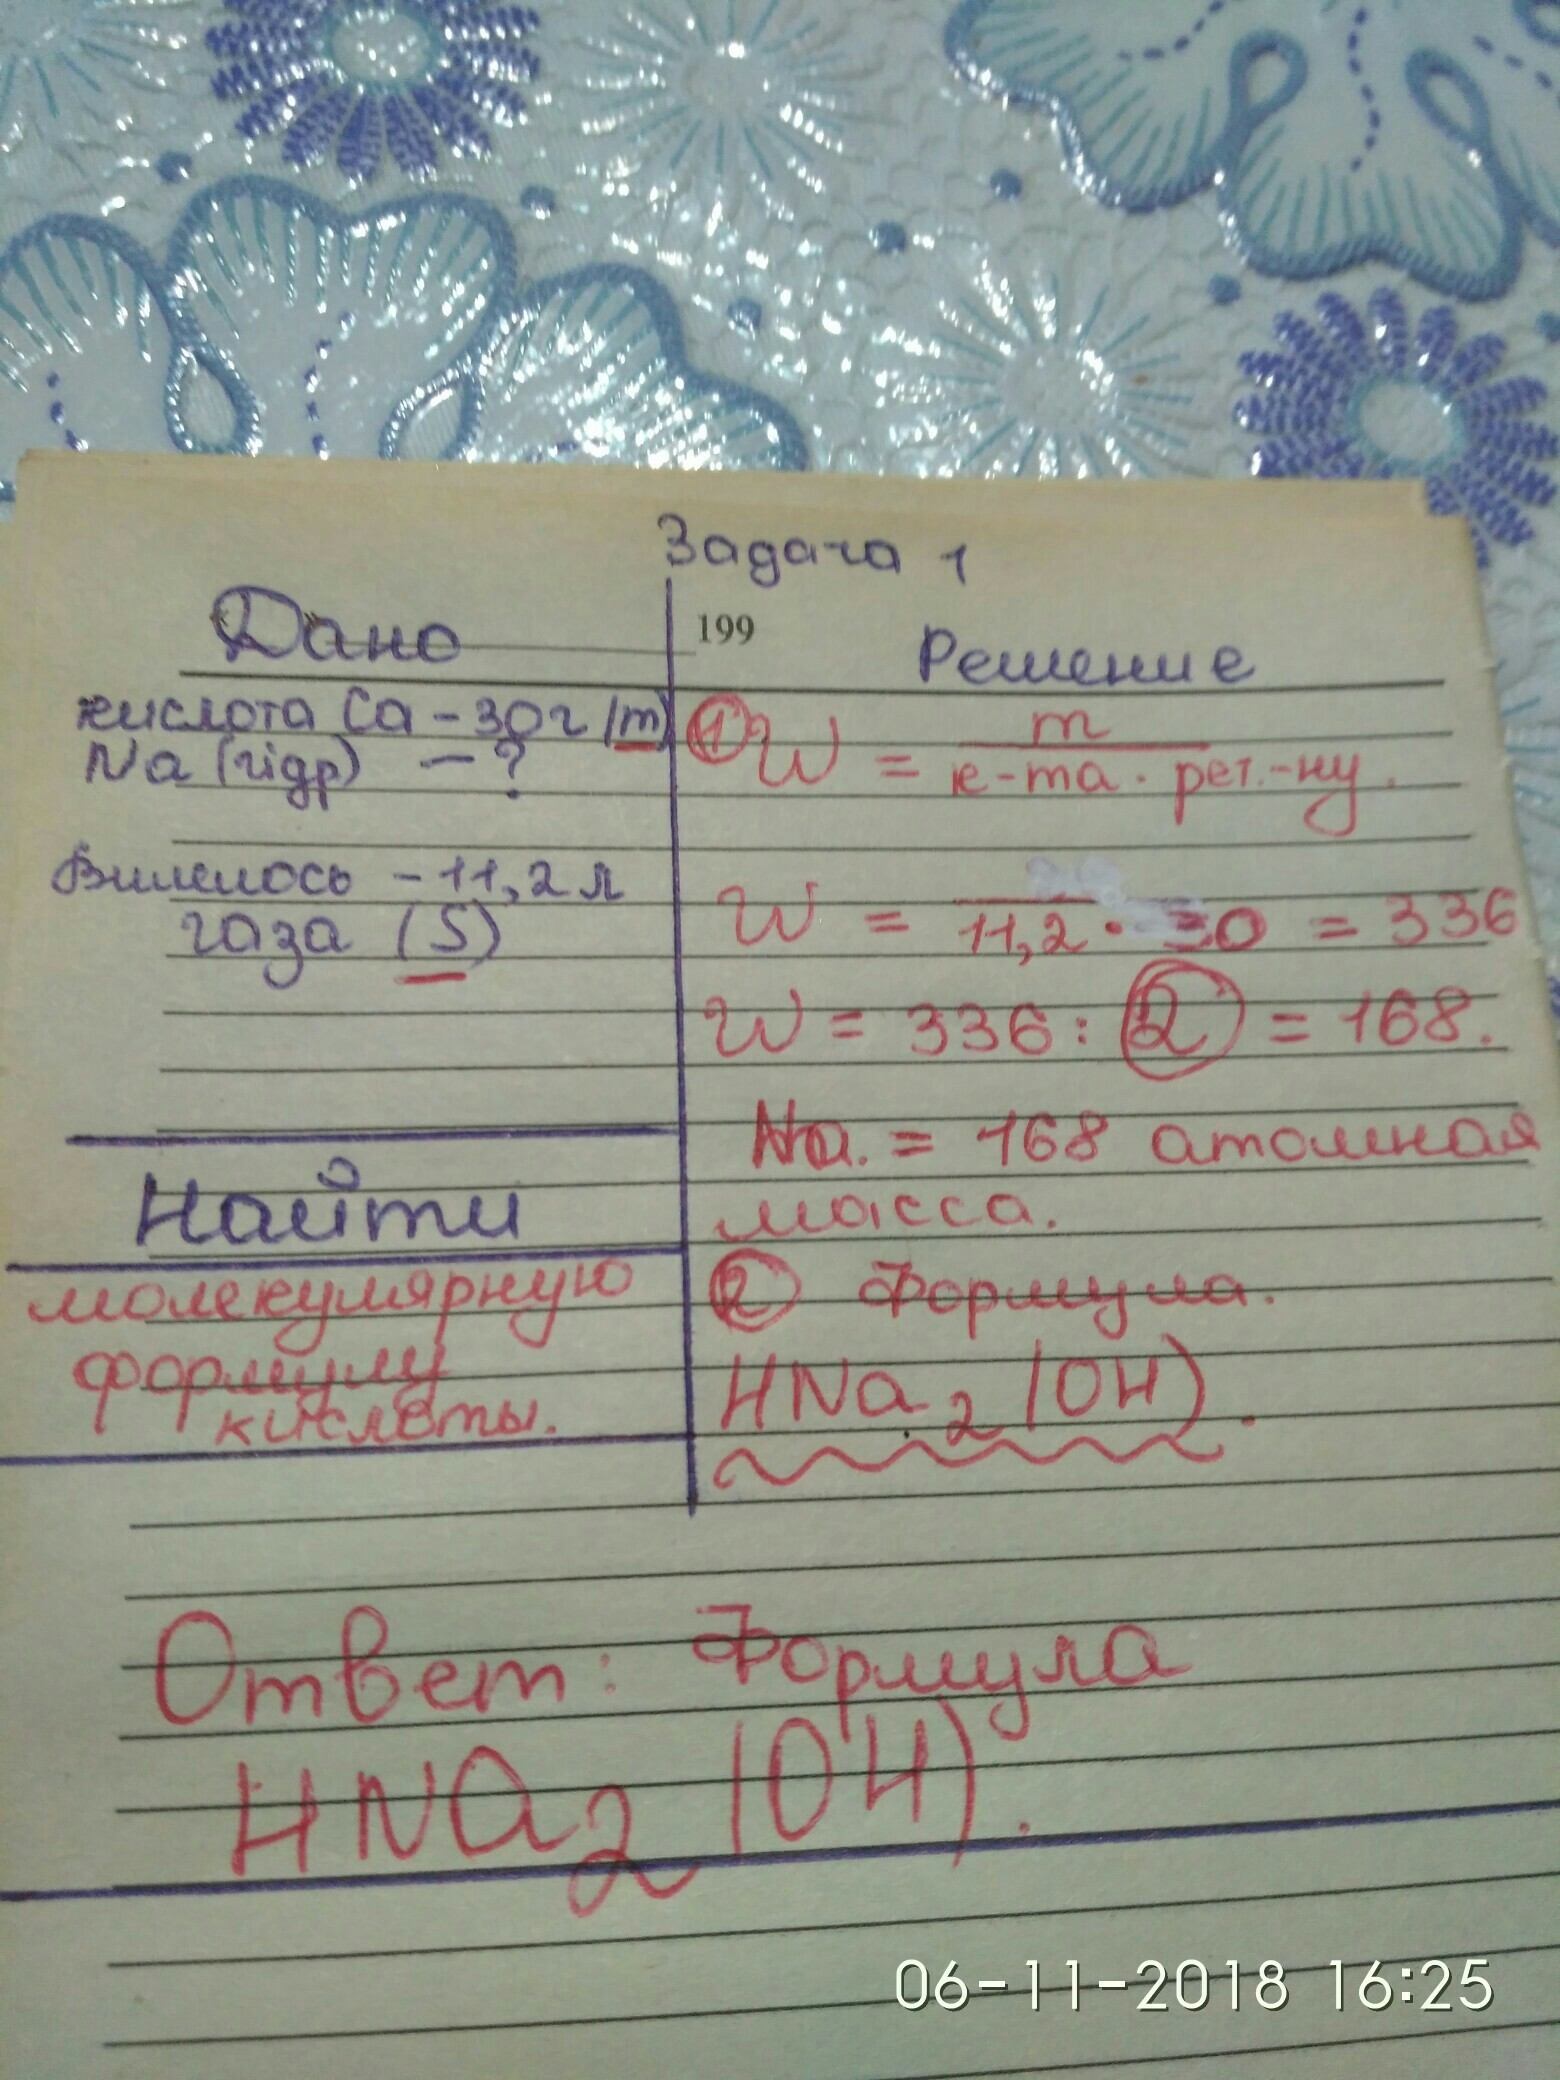 Задача 1
Дано
199
Решение
кислота Ca - 30г (m)
Na (гідр) - ?
Вилилось - 11,2 л
газа (S)
① W = m / к-та. рет.-ну.
W = 11,2 • 30 = 336
W = 336 : 2 = 168.
Na. = 168 атомная
масса.
Найти
молекулярную
формулу
кислоты.
② Формула.
HNa₂ (OH).
Ответ: Формула
HNa₂ (OH).
06-11-2018 16:25